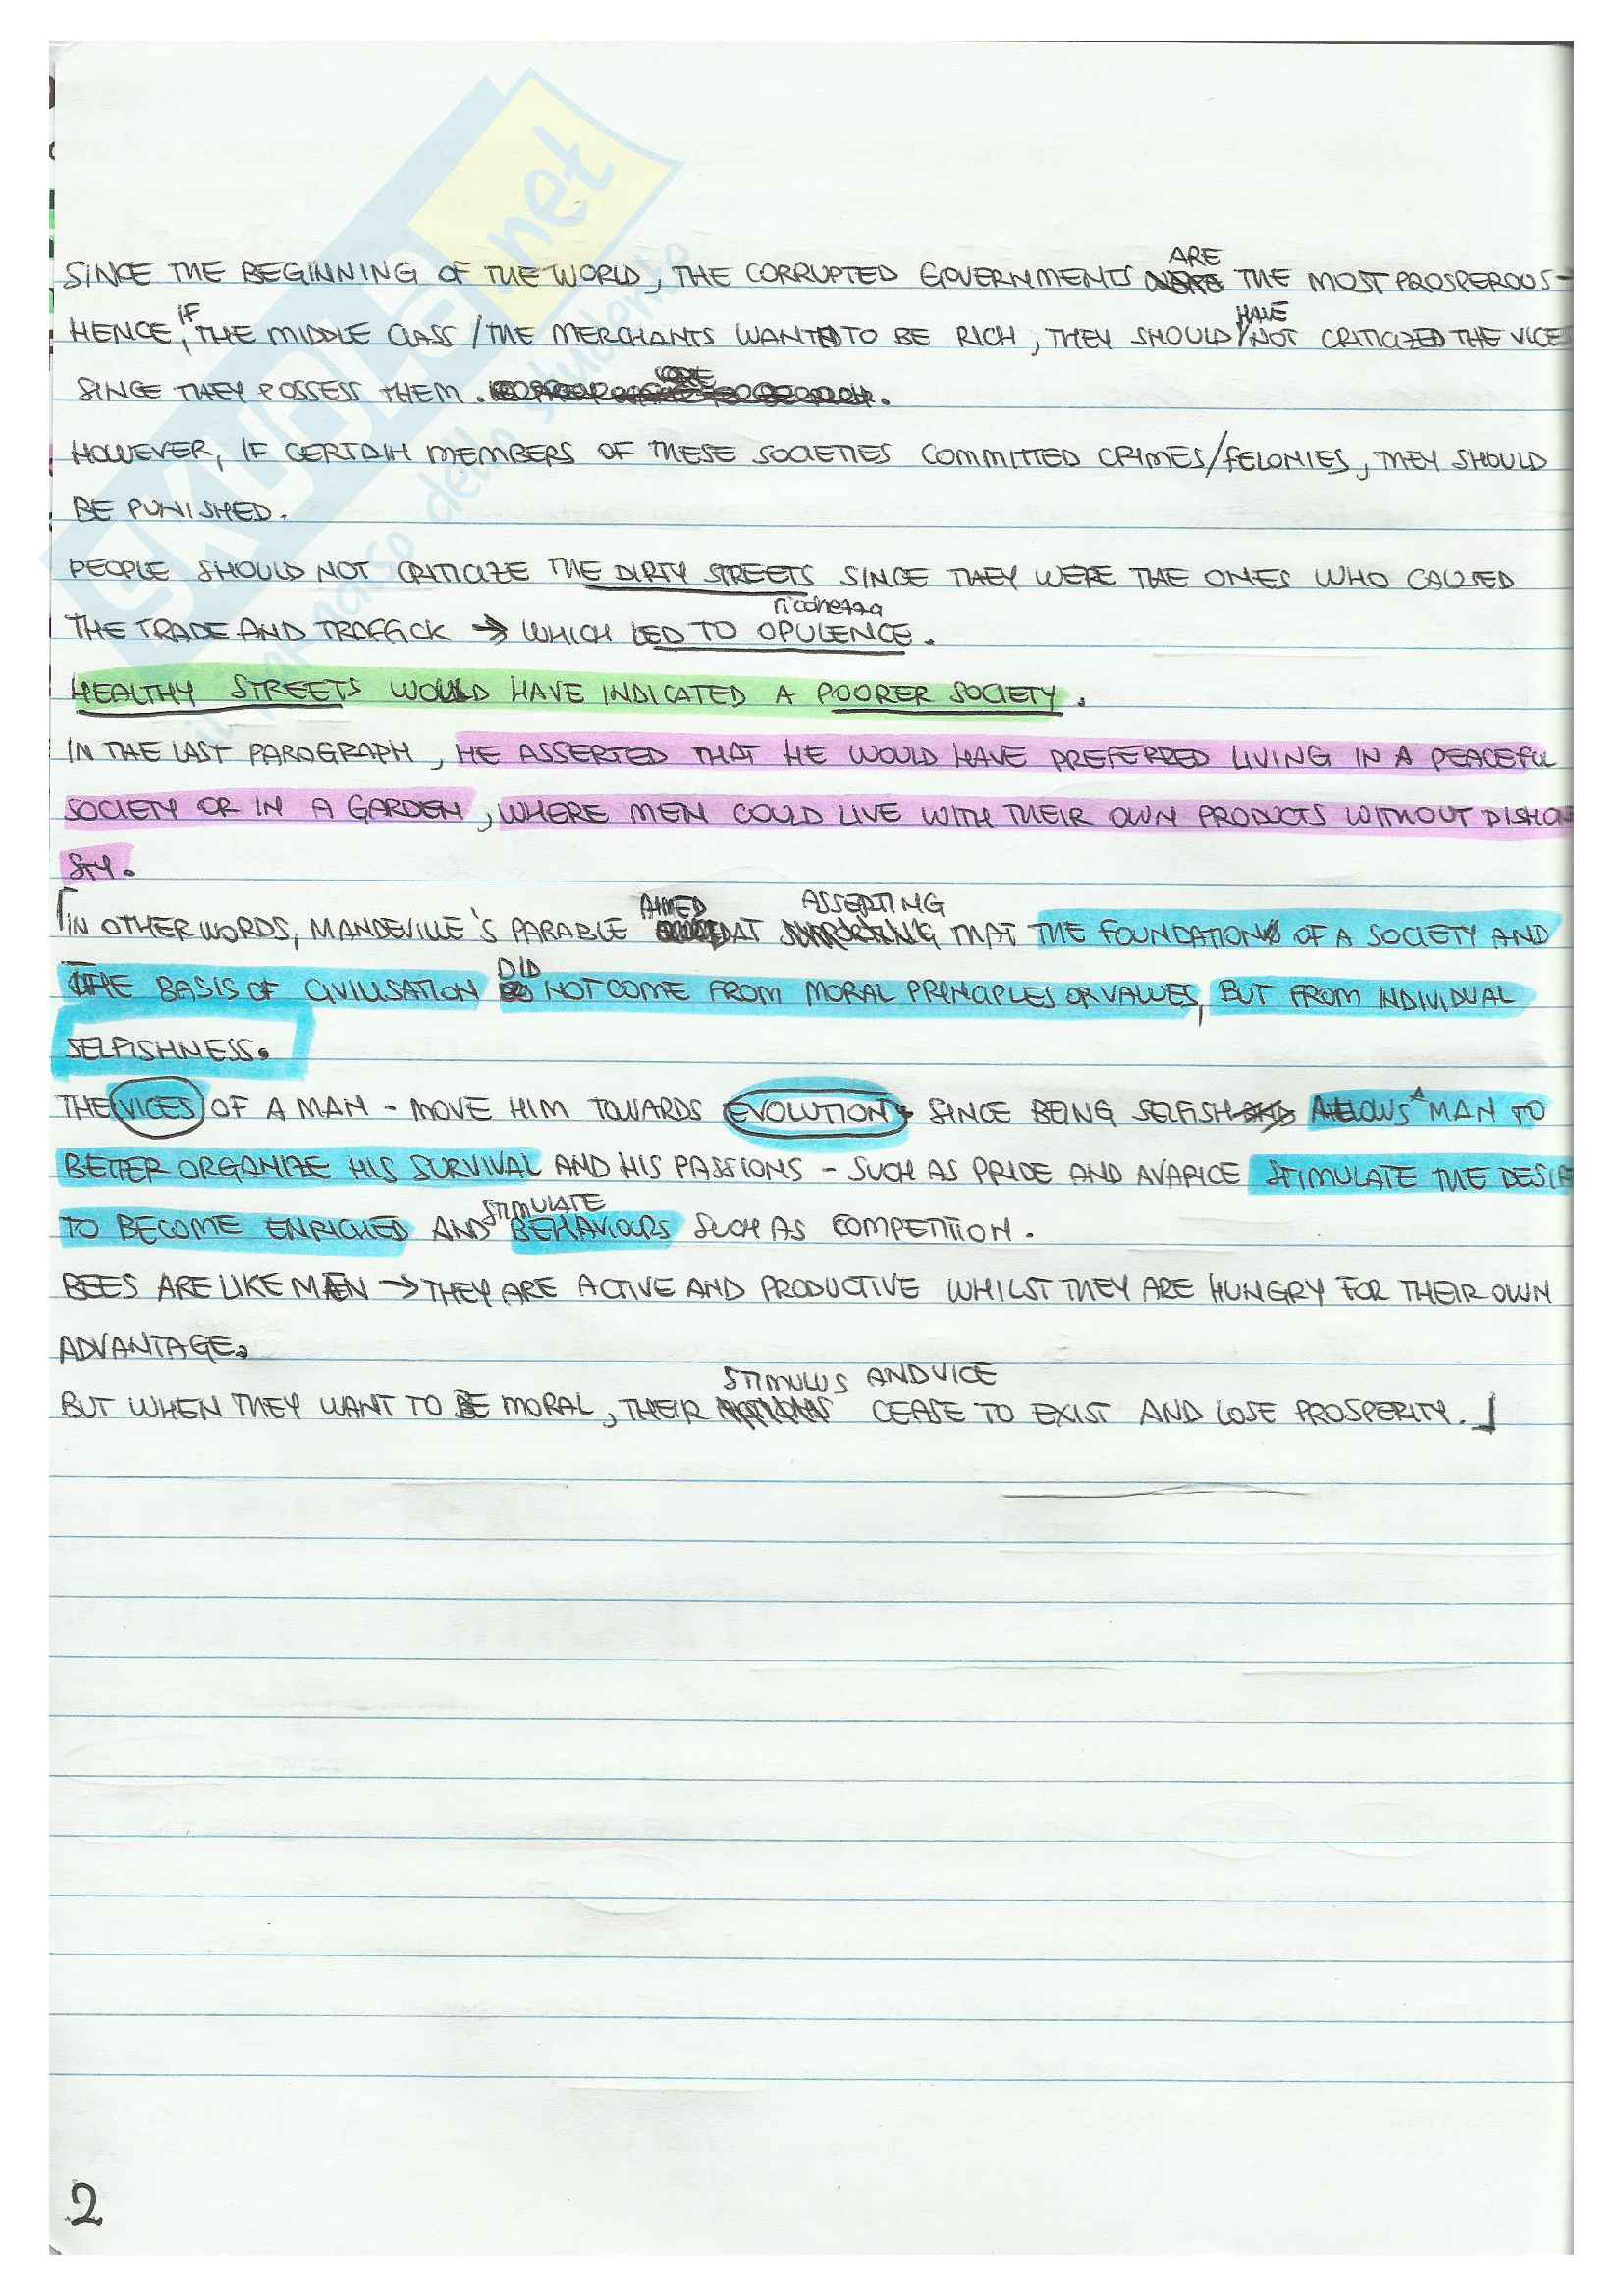 SINCE THE BEGINNING OF THE WORLD, THE CORRUPTED GOVERNMENTS ARE THE MOST PROSPEROUS -
HENCE, IF THE MIDDLE CLASS / THE MERCHANTS WANT TO BE RICH, THEY SHOULD HAVE NOT CRITICIZED THE VICE
SINCE THEY POSSESS THEM.
HOWEVER, IF CERTAIN MEMBERS OF THESE SOCIETIES COMMITTED CRIMES/FELONIES, THEY SHOULD
BE PUNISHED.
PEOPLE SHOULD NOT CRITICIZE THE DIRTY STREETS SINCE THEY WERE THE ONES WHO CAUSED
THE TRADE AND TRAFFICK → WHICH LED TO OPULENCE.
ricchezza
HEALTHY STREETS WOULD HAVE INDICATED A POORER SOCIETY.
IN THE LAST PARAGRAPH, HE ASSERTED THAT HE WOULD HAVE PREFERRED LIVING IN A PEACEFUL
SOCIETY OR IN A GARDEN, WHERE MEN COULD LIVE WITH THEIR OWN PRODUCTS WITHOUT DISHON
STY.
IN OTHER WORDS, MANDEVILLE'S PARABLE AIMED AT ASSERTING THAT THE FOUNDATION OF A SOCIETY AND
THE BASIS OF CIVILISATION DID NOT COME FROM MORAL PRINCIPLES OR VALUES, BUT FROM INDIVIDUAL
SELFISHNESS.
THE VICES OF A MAN - MOVE HIM TOWARDS EVOLUTION SINCE BEING SELFISH ALLOWS A MAN TO
BETTER ORGANIZE HIS SURVIVAL AND HIS PASSIONS - SUCH AS PRIDE AND AVARICE STIMULATE THE DESIR
TO BECOME ENRICHED AND STIMULATE BEHAVIOURS SUCH AS COMPETITION.
BEES ARE LIKE MEN → THEY ARE ACTIVE AND PRODUCTIVE WHILST THEY ARE HUNGRY FOR THEIR OWN
ADVANTAGE.
BUT WHEN THEY WANT TO BE MORAL, THEIR STIMULUS AND VICE CEASE TO EXIST AND LOSE PROSPERITY.
2
SKUOLA.net
il paradiso dello studente